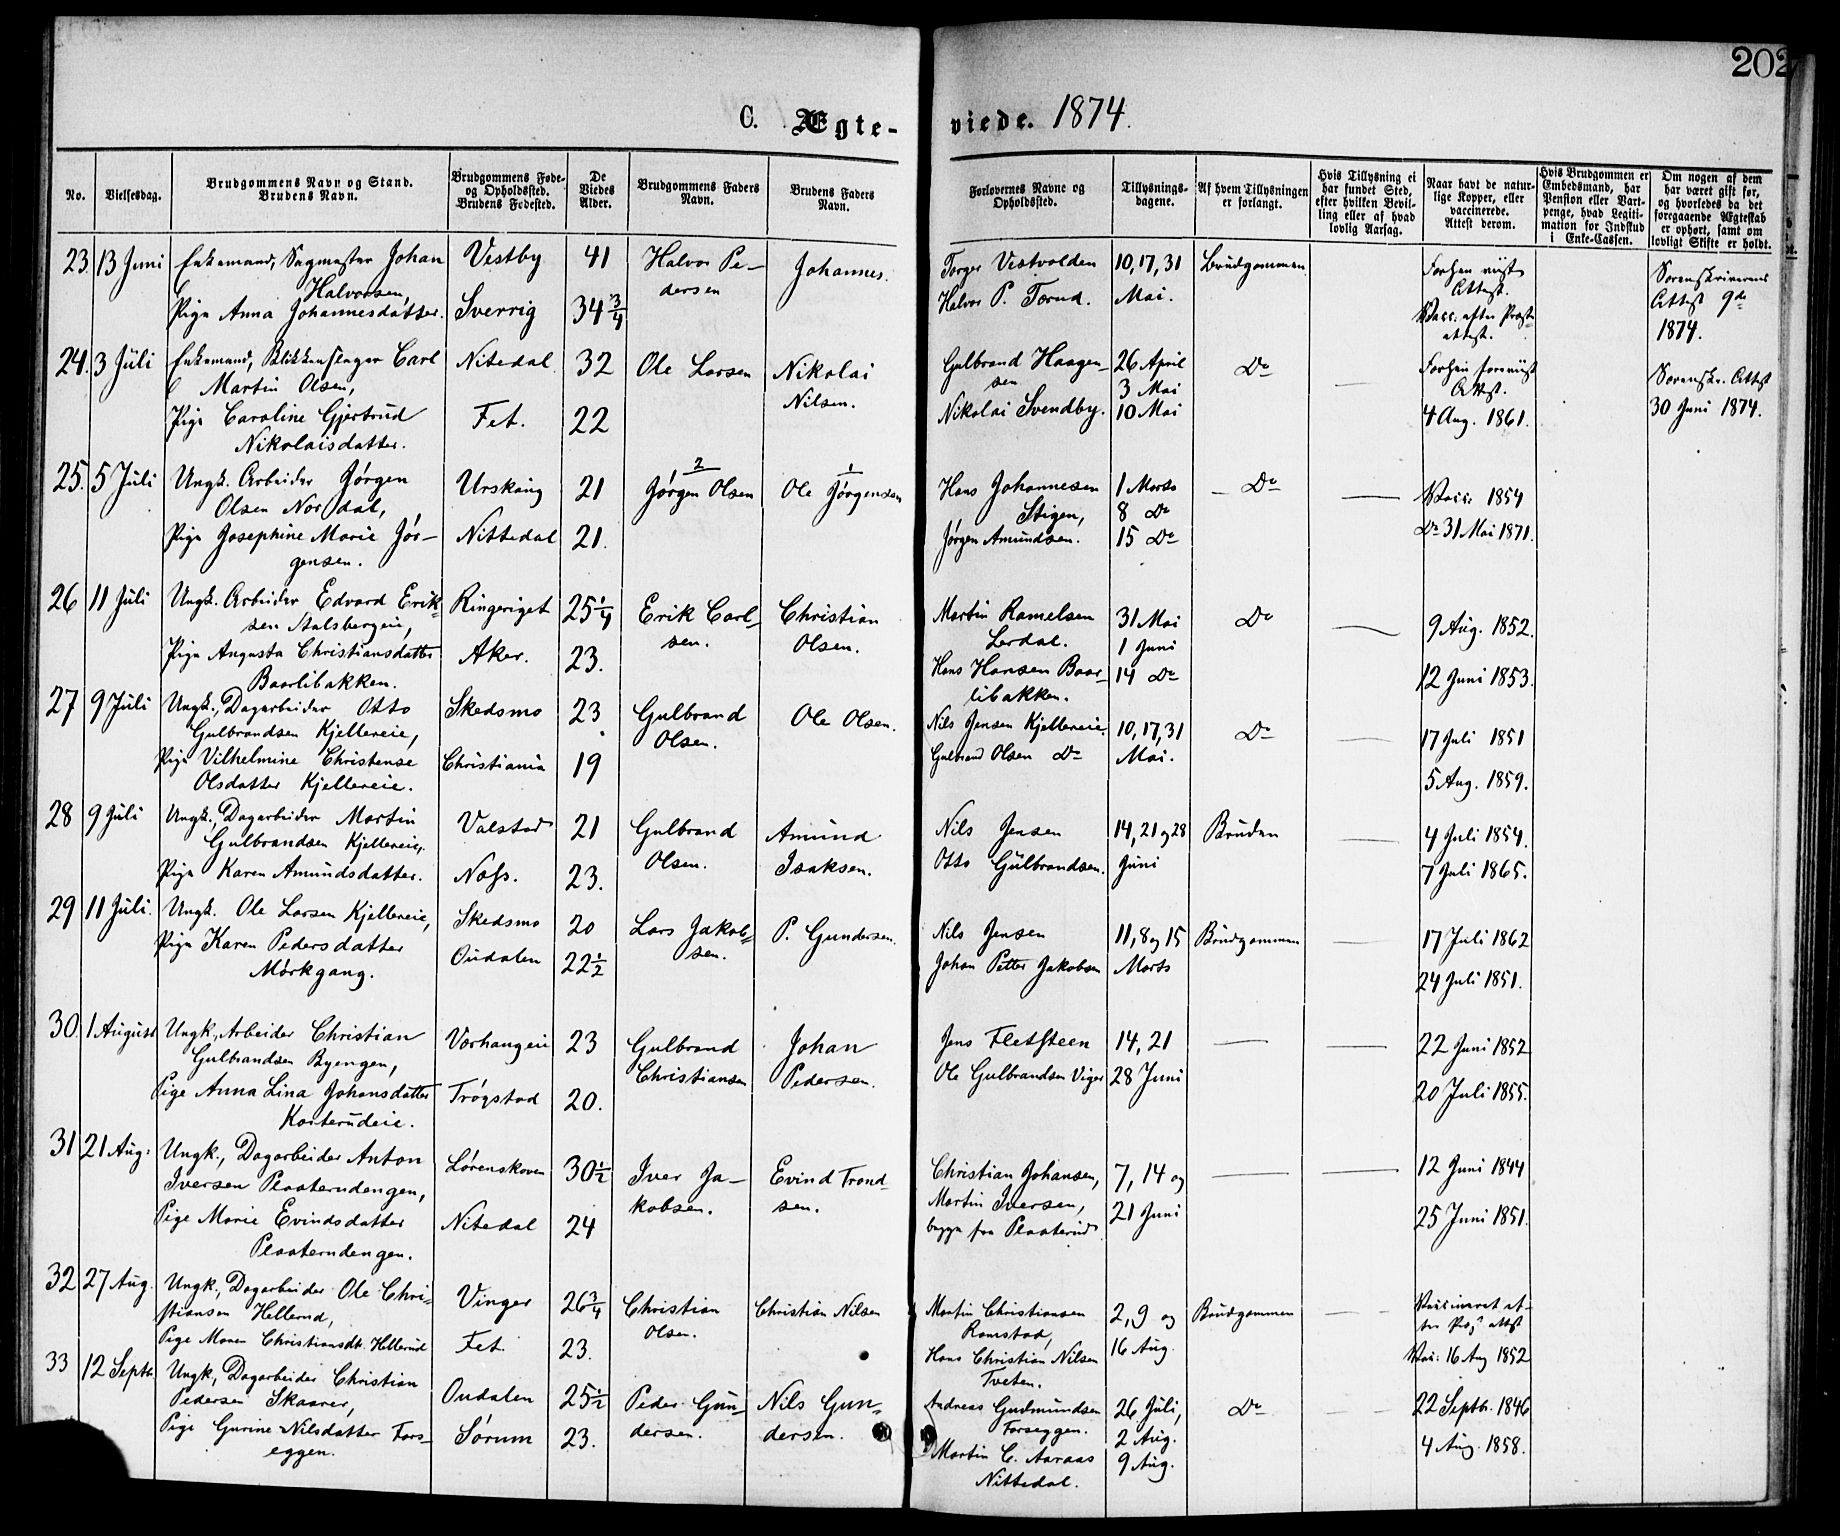 202
C. Ægte-
viede. 1874.
No.
Vielsesdag.
Brudgommens Navn og Stand.
Brudens Navn.
Brudgommens Føde-
og Opholdssted.
Brudens Fødested.
De
Viedes
Alder.
Brudgommens Faders
Navn.
Brudens Faders
Navn.
Forlovernes Navne og
Opholdssted.
Tillysnings-
dagene.
Af hvem Tillysningen
er forlangt.
Hvis Tillysning ei
har fundet Sted,
efter hvilken Bevil-
ling eller af hvad
lovlig Aarsag.
Naar havt de natur-
lige Kopper, eller
vaccinerede.
Attest derom.
Hvis Brudgommen er
Embedsmand, har
Pension eller Vart-
penge, hvad Legiti-
mation for Indskud
i Enke-Cassen.
Om nogen af dem
har været gift før,
og hvorledes da det
foregaaende Ægteskab
er ophørt, samt om
lovligt Skifte er holdt.
23. 13 Juni
Enkemand, Sagmester Johan
Halvorsen,
Pige Anna Johannesdatter.
Vestby
Sverrig
41
34 3/4
Halvor Pe-
dersen
Johannes.
Torger Vestvolden
Halvor P. Torud.
10, 17, 31
Mai.
Brudgommen
Attest.
Vacc. efter Præste
attest.
Sorenskriverens
Attest 9de
1874.
24. 3 Juli
Enkemand, Blikkenslager Carl
Martin Olsen,
Pige Caroline Gjertrud
Nikolaisdatter.
Nitedal
Fet.
32
22
Ole Larsen
Nikolai
Nilsen.
Gulbrand Haagen-
sen
Nikolai Svendby.
26 April
3 Mai
10 Mai
Do
—
Attest.
4 Aug. 1861.
Sorenskr. Attest
30 Juni 1874.
25. 5 Juli
Ungk. Arbeider Jørgen
Olsen Nordal,
Pige Josephine Marie Jør-
gensen.
Urskoug
Nittedal
21
21.
2
Jørgen Olsen
1
Ole Jørgensen
Hans Johannesen
Stigen,
Jørgen Amundsen.
1 Marts
8 Do
15 Do
Do
—
Vacc. 1854
Do 31 Mai 1871.
26 11 Juli
Ungk. Arbeider Edvard Erik-
sen Aalsbergeie,
Pige Augusta Christiansdatter
Baarlibakken.
Ringeriget
Aker.
25 1/4
23.
Erik Carl-
sen.
Christian
Olsen.
Martin Ramelsen
Lerdal.
Hans Hansen Baar-
libakken.
31 Mai
1 Juni
14 Do
Do
—
9 Aug. 1852.
12 Juni 1853.
27 9 Juli
Ungk., Dagarbeider Otto
Gulbrandsen Kjellereie,
Pige Vilhelmine Christense
Olsdatter Kjellereie.
Skedsmo
Christiania
23
19
Gulbrand
Olsen.
Ole Olsen.
Nils Jensen Kjellereie.
Gulbrand Olsen Do
10, 17, 31
Mai.
Do
—
17 Juli 1851
5 Aug. 1859.
28 9 Juli
Ungk., Dagarbeider Martin
Gulbrandsen Kjellereie,
Pige Karen Amundsdatter.
Valstad
Næss.
21
23.
Gulbrand
Olsen.
Amund
Isaksen.
Nils Jensen
Otto Gulbrandsen.
14, 21 og 28
Juni
Bruden
—
4 Juli 1854.
7 Juli 1865.
29 11 Juli.
Ungk. Ole Larsen Kjellereie,
Pige Karen Pedersdatter
Mørkgang.
Skedsmo
Oudalen
20
22 1/2
Lars Jakob-
sen.
P. Gundersen.
Nils Jensen
Johan Petter Jakobsen
11, 8 og 15
Marts
Brudgommen
—
17 Juli 1862
24 Juli 1851.
30. 1 August
Ungk., Arbeider Christian
Gulbrandsen Byengen,
Pige Anna Lina Johansdatter
Korterudeie.
Vorhaugeie
Trøgstad
23
20.
Gulbrand
Christiansen
Johan
Pedersen.
Jens Fletsteen
Ole Gulbrandsen Viger
14, 21
28 Juni
—
—
22 Juni 1852
20 Juli 1855.
31 21 Aug:
Ungk., Dagarbeider Anton
Iversen Plaaterudengen,
Pige Marie Evindsdatter
Plaaterudengen.
Lørenskoven
Nitedal
30 1/2
24
Iver Ja-
kobsen.
Evind Trond-
sen.
Christian Johansen,
Martin Iversen,
begge fra Plaaterud
7, 14 og
21 Juni
—
—
12 Juni 1844
25 Juni 1851.
32 27 Aug.
Ungk., Dagarbeider Ole Chri-
stiansen Hellerud,
Pige Maren Christiansdt. Hellerud
Vinger
Fet.
26 3/4
23.
Christian
Olsen.
Christian Nilsen
Martin Christiansen
Ramstad,
Hans Christian Nilsen
Tveten.
2, 9 og
16 Aug.
Brudgommen
—
Vaccineret ef-
ter attest
Vac: 16 Aug 1852
33 12 Septb.
Ungk., Dagarbeider Christian
Pedersen Skaarer,
Pige Gurine Nilsdatter Fors-
eggen.
Oudalen
Sørum
25 1/2
23.
Peder Gun-
dersen.
Nils Gun-
dersen.
Andreas Gudmundsen
Forseggen.
Martin C. Aaraas
Nittedal.
26 Juli,
2 Aug.
9 Aug.
Do
—
22 Septb. 1846
4 Aug. 1858.